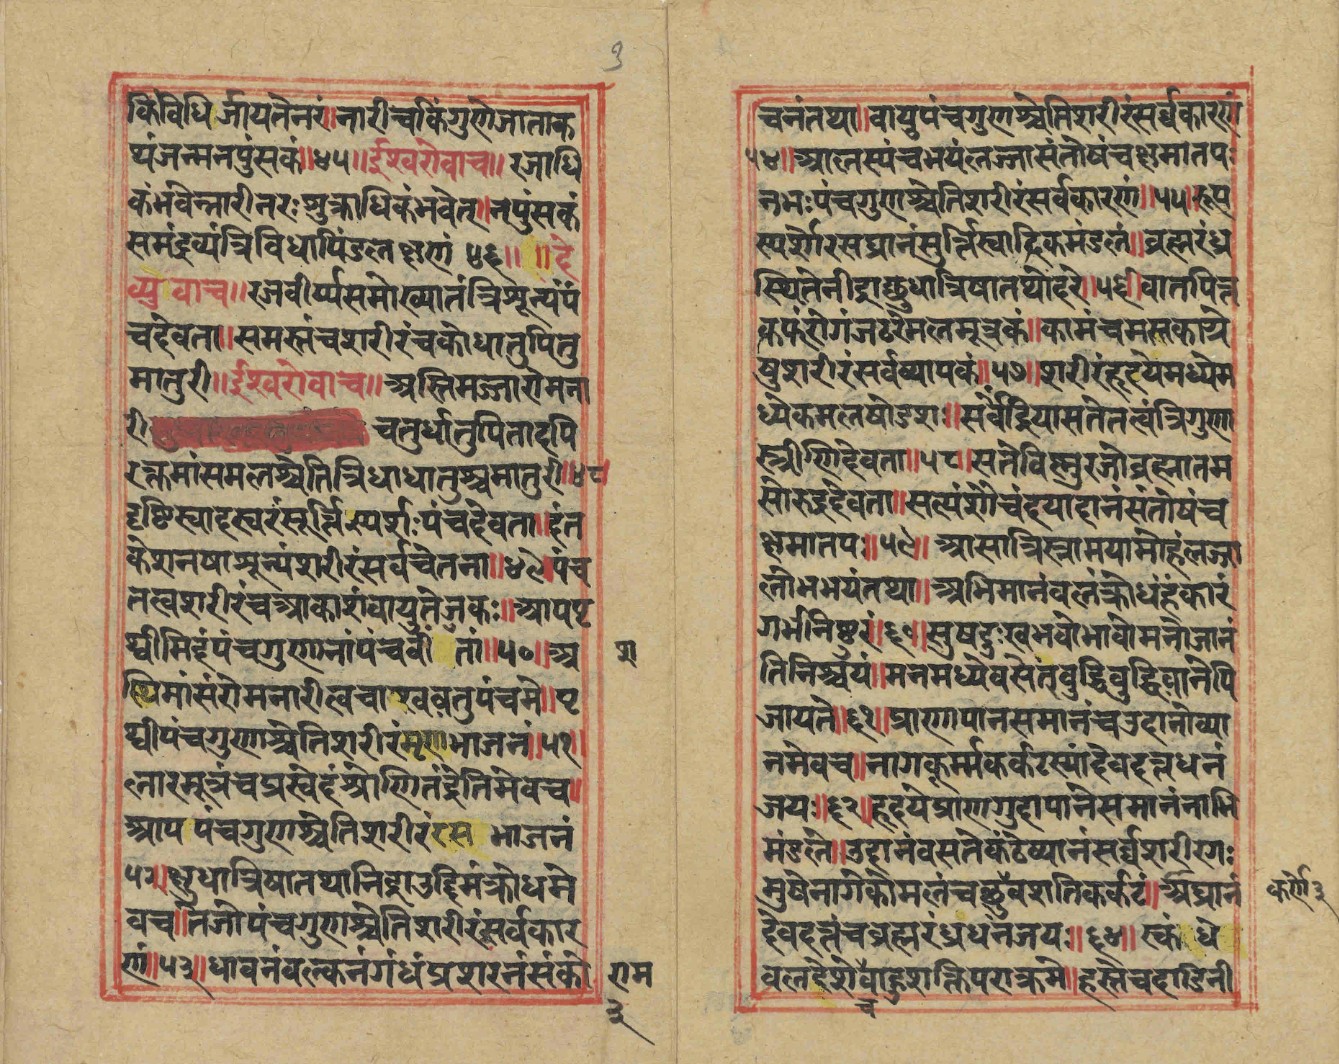 किंविधि र्जायतेनरं॥नारीचकिंगुणेजाताक
थंजन्मनपुंसकं॥४५॥ईश्वरोवाच॥रजाधि
कंभवेन्नारीनरःशुक्राधिकंभवेत्॥नपुंसकं
समंद्रव्यंत्रिविधापिंडलक्षणं४६॥ ॥दे
व्युवाच॥रजवीर्य्यसमोख्यातंत्रिशून्यंपं
चदेवता॥समस्तंचशरीरंचकोधातुपितु
मातुरी॥ईश्वरोवाच॥अस्तिमज्जारोमना
री चतुर्धातुपितादपि
रक्तमांसमलश्चेतित्रिधाधातुश्चमातुरी॥४८॥
दृष्टिस्वादस्वरंसूर्त्तिस्पर्शःपंचदेवता॥दंत
केशनषाशून्यंशरीरंसर्वचेतना॥४९॥पंच
तत्वशरीरंचआकाशंवायुतेजकः॥आपपृ
थ्वीमिदंपंचगुणानांपंचवीं तां॥५०॥अ
स्थिमांसंरोमनारीत्वचा वतुपंचमे॥पृ
थ्वीपंचगुणाश्चेतिशरीरंमृणाभाजनं॥५१॥
लारमूत्रंचप्रस्वेदंश्रोणितंद्रुतिमेवच॥
आप पंचगुणाश्चेतिशरीरं भाजनं
५२॥क्षुधात्रिषातथानिद्राउद्दिमंक्रोधमे
वच॥तेजोपंचगुणाश्चेतिशरीरंसर्वकार
णं॥५३॥धावनंवल्कनंगंधंप्रशरनंसंको
रा
राम
३
चनंतथा॥वायुपंचगुणाश्चेतिशरीरंसर्वकारणं
५४॥आलस्यंचभयंलज्जासंतोषंचक्षमातपः
नभःपंचगुणाश्चेतिशरीरंसर्वकारणं॥५५॥रूप
स्पर्शोरसघ्रानंसुर्त्तिस्वादिकमंडलं॥ब्रह्मरंध्र
स्थितेनीद्राक्षुधात्रिषातथोदरे॥५६॥वातपित्त
कफंरोगंजठरेमलमूत्रकं॥कामंचमस्तकाये
षुशरीरंसर्वव्यापकं॥५७॥शरीरंहृदयेमध्येम
ध्येकमलषोडशः॥सर्वेंद्रियासतेतत्वंत्रिगुणा
स्त्रीणिदेवता॥५८॥सतेविस्नुरजोब्रह्मातम
सोरुद्रदेवता॥सत्यंशौचंदयादानंसंतोषंच
क्षमातपः॥५९॥आसात्रिस्नामयामोहंलज्जा
लोभभयंतथा॥अभिमानंवलंक्रोधंहंकारं
गर्भनिष्ठुरं॥६०॥सुषदुःखभवोभावोमनोजानं
तिनिश्चयं॥मनमध्येवसेतबुद्धिबुद्धिवानेपि
जायते॥६१॥प्राणापानसमानंचउदानोव्या
नमेवच॥नागकूर्म्मकर्कटस्यांदेवदत्तधनं
जयः॥६२॥हृदयेप्राणगुदापानेसमानंनाभि
मंडले॥उदानंवसतेकंठेव्यानंसर्व्वशरीरगः
मुषेनागेकोमलंचछुवशतिकर्कटं॥अघ्रानं
देवदत्तंचब्रह्मरंध्रधनंजयः॥६४॥स्कंधे
वलदेशेवाहुशक्तिपराक्रमे॥हस्तेचदाडिनी
च